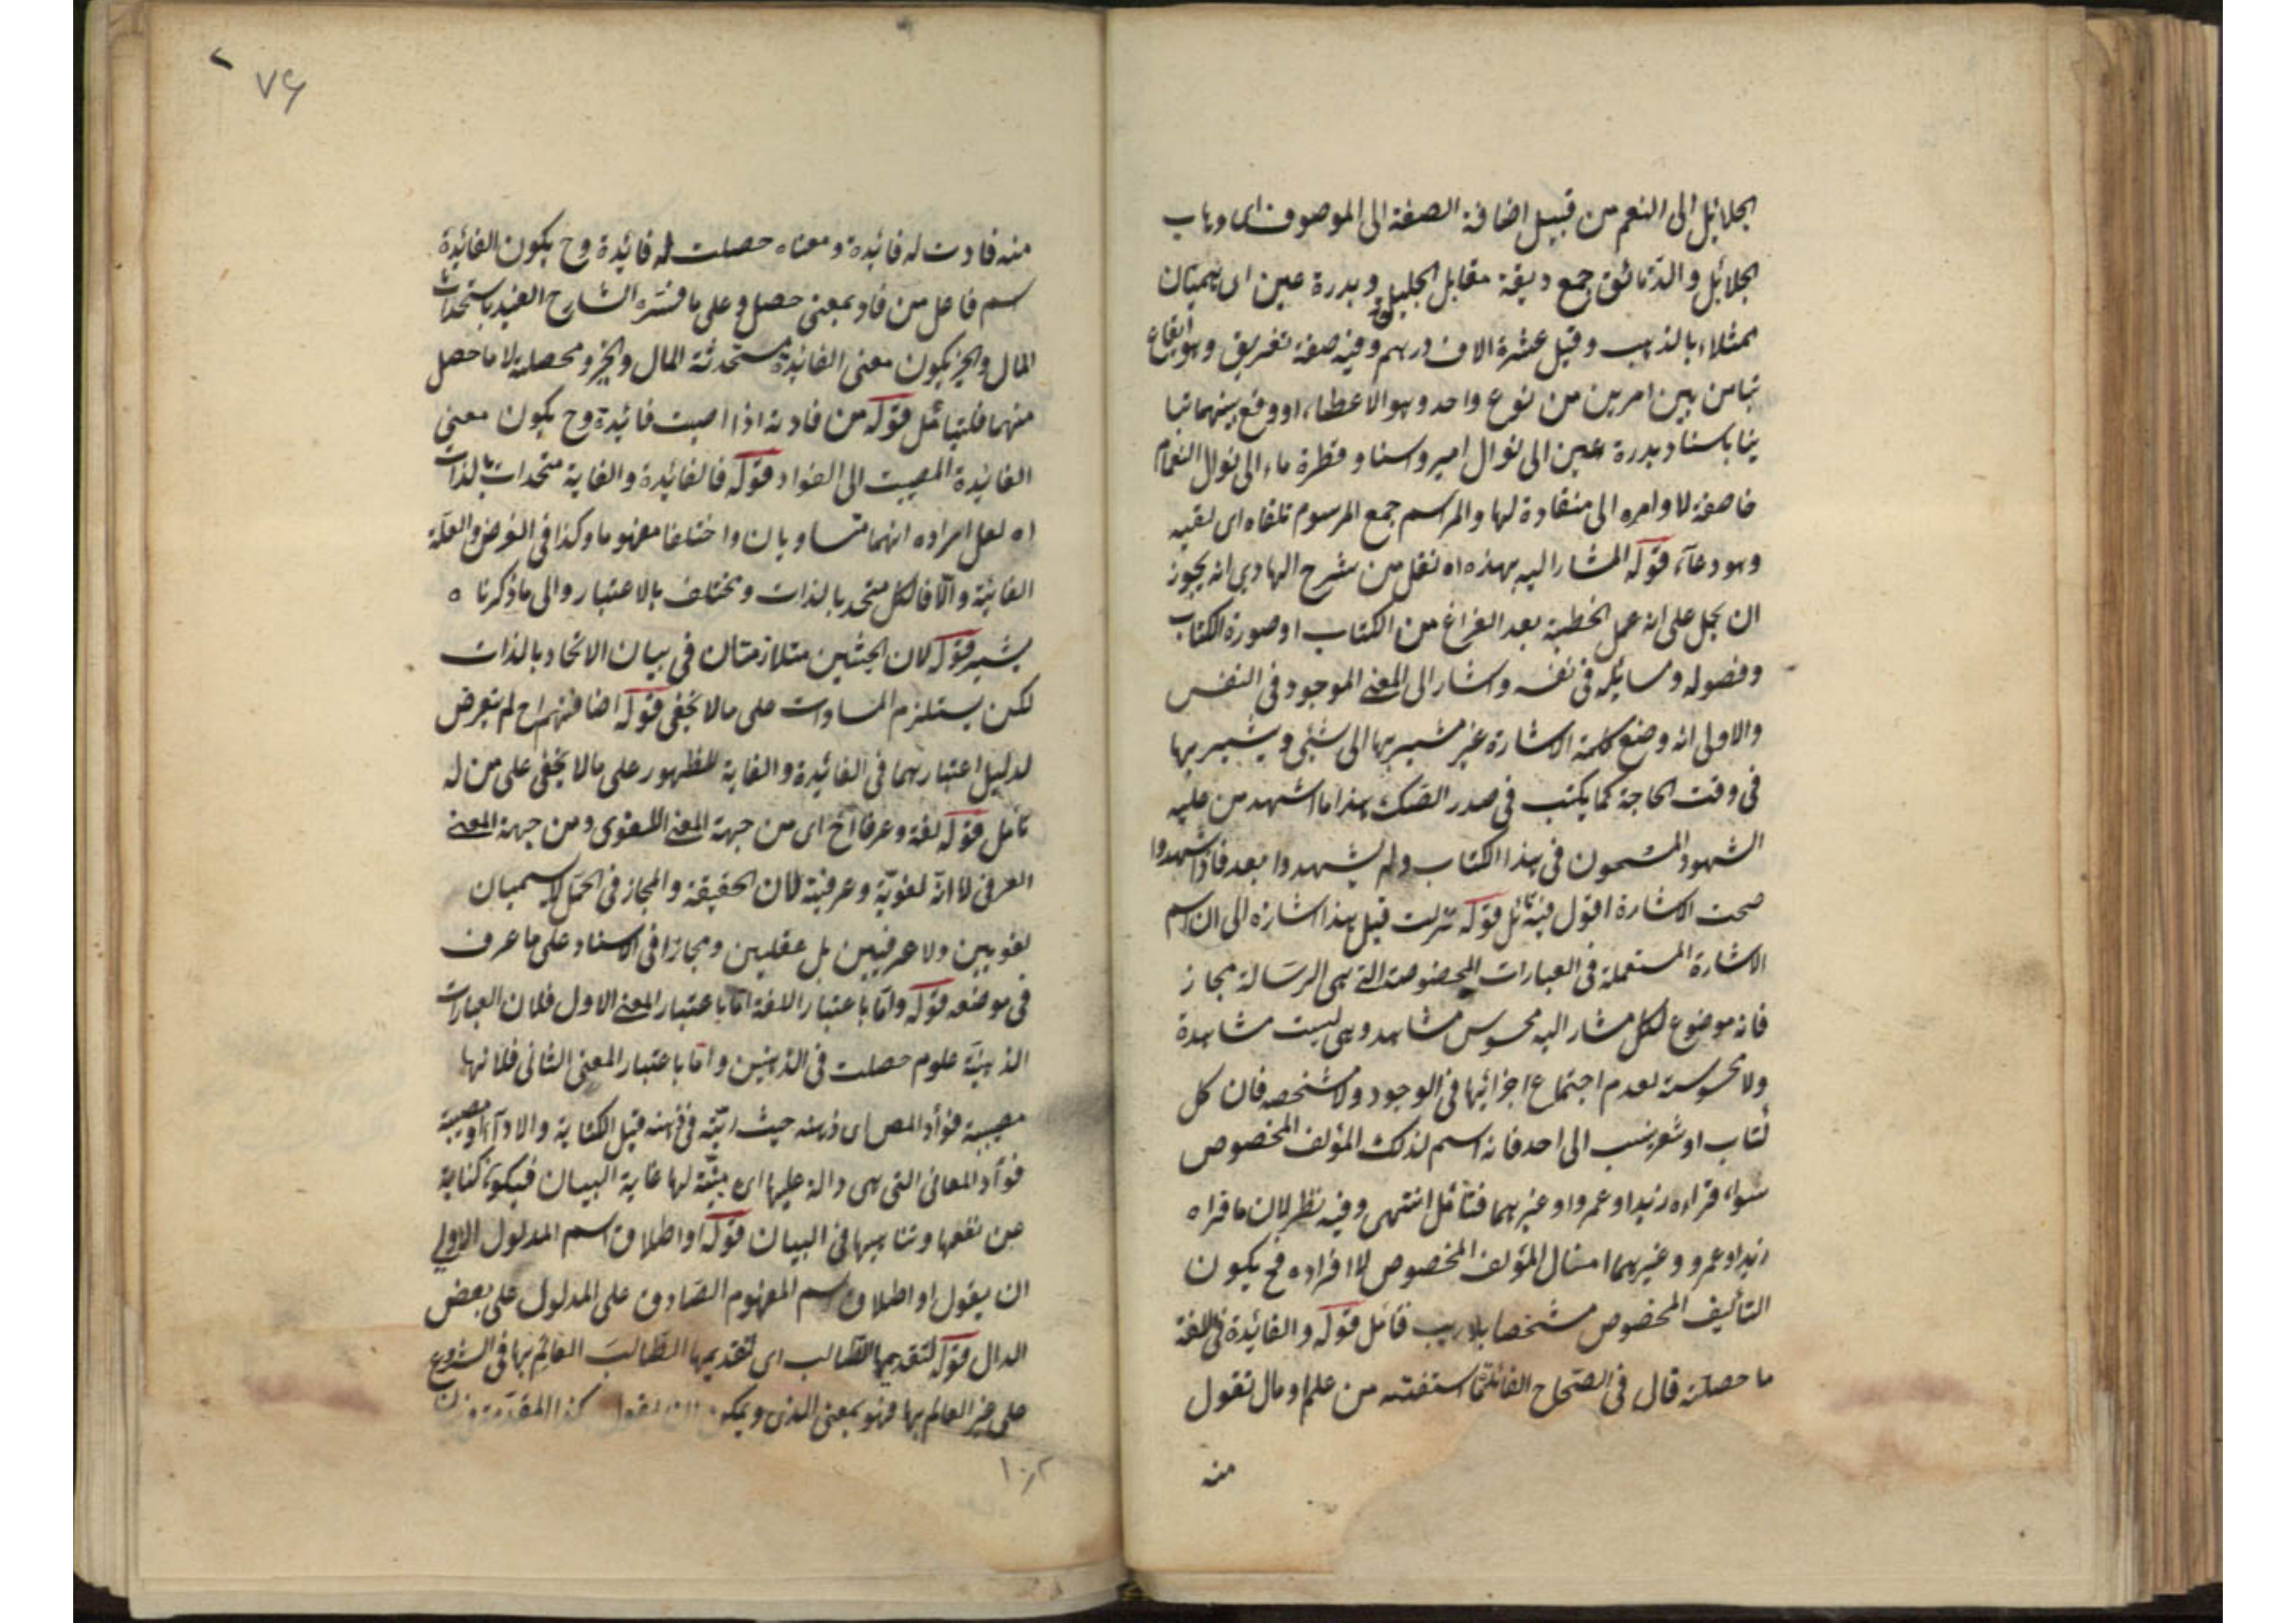 الجلائل الى النعم من قبيل اضافة الصفة الى الموصوف اى وهاب
الجلائل والدقائق جمع دقيقة مقابل الجليل وبدرة عين اى هميان
ممثلاء بالذهب وقيل عشرة الاف درهم وفيه صفة تفريق وهو ايقاع
تباين بين امرين من نوع واحد وهو الاعطاء اووقع بينهما تبا
ينا باسناد بدرة عين الى نوال امير واسناد قطرة ماء الى نوال الغمام
خاضعة لاوامره الى منقادة لها والمراسم جمع المرسوم تلقاه اى لقيه
وهو دعاء قوله المشار اليه بهذه اه نقل من شرح الهادي انه يجوز
ان يحمل على انه عمل الخطبة بعد الفراغ من الكتاب او صورة الكتاب
وفصوله ومسايله فى نفسه واشار الى المعنى الموجود فى النفس
والاولى انه وضع كلمة الاشارة غير مشير بها الى شئ ويشير بها
فى وقت الحاجة كما يكتب فى صدر الصك هذا ما اشهد من عليه
الشهود المسمون فى هذا الكتاب ولم يشهدوا بعد فاذا شهدوا
صحت الاشارة اقول فيه تأمل قوله نزلت قيل هذا اشارة الى ان اسم
الاشارة المستعملة فى العبارات المخصوصة التى هى الرسالة مجاز
فانه موضوع لكل مشار اليه محسوس مشاهد وهى ليست مشاهدة
ولا محسوسة لعدم اجتماع اجزائها فى الوجود ولا مشخصه فان كل
كتاب او شعر ينسب الى احد فانه اسم لذلك المؤلف المخصوص
سواء قراءه زيد او عمرو او غيرهما فتأمل انتهى وفيه نظر لان ما قراه
زيد او عمرو وغيرهما امثال المؤلف المخصوص لا افراده فح يكون
التأليف المخصوص مشخصا بلا ريب فتأمل قوله والفائدة فى اللغة
ما حصلته قال فى الصحاح الفائدة ما استفدته من علم او مال تقول
منه
٧٤
منه فادت له فائدة ومعناه حصلت له فائدة وح يكون الفائدة
اسم فاعل من فاد بمعنى حصل وعلى ما فسره الشارح الفيد باستحداث
المال والخير يكون معنى الفائدة مستحدثة المال والخير ومحصلته لا ما حصل
منهما فليتأمل قوله من فادته اذا اصبت فائدة وح يكون معنى
الفائدة المصيبت الى الفواد قوله فالفائدة والغاية متحدات بالذات
اه لعل مراده انهما متساويان واختلفا مفهوما وكذا فى الغرض والعلة
الغائية والا فالكل متحد بالذات ومختلف بالاعتبار والى ما ذكرنا ه
يشير قوله لان الحيثين متلازمتان فى بيان الاتحاد بالذات
لكن يستلزم المساوات على ما لا يخفى قوله اضافتهم اح لم يتعرض
لدليل اعتبارهما فى الفائدة والغاية للظهور على ما لا يخفى على من له
تأمل قوله لغة وعرفا اخ اى من جهة المعنى اللغوى ومن جهة المعنى
العرفى لا انه لغوية وعرفية لان الحقيقة والمجاز فى الحمل لا يسميان
لغويين ولا عرفيين بل عقليين ومجازا فى الاسناد على ما عرف
فى موضعه قوله واما باعتبار اللغة اما باعتبار المعنى الاول فلان العبارات
الذهنية علوم حصلت فى الذهنين واما باعتبار المعنى الثانى فلانها
مصيبة فؤاد المص اى ذهنه حيث رتبه فى ذهنه قبل الكتابة والاداء او مصيبة
فؤاد المعانى التى هى دالة عليها اى مبينة لها غاية البيان فيكون كناية
عن نفعها وتناهيها فى البيان قوله او اطلاق اسم المدلول الاولى
ان يقول او اطلاق اسم المفهوم الصادق على المدلول على بعض
الدال قوله لتقديمها الطالب اى لتقديمها الطالب العالم بها فى الشروع
على غير العالم بها فهو بمعنى الذى ويمكن ان يقول كذا المقدمة